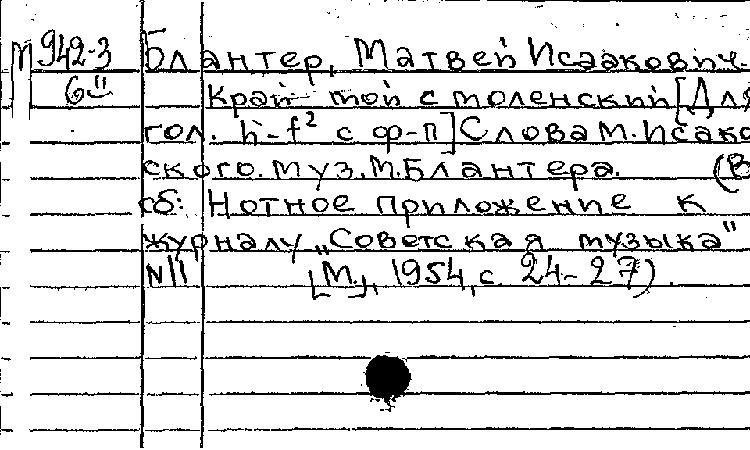 М 942-3 Блантер, Матвей Исаакович.
6ц Край ты мой смоленский [Для
гол. h-f² с ф-п] Слова М. Исако
ского. муз. М. Блантера. (В
сб: Нотное приложение к
журналу „Советская музыка"
N 11 [М.], 1954, с. 24-27).